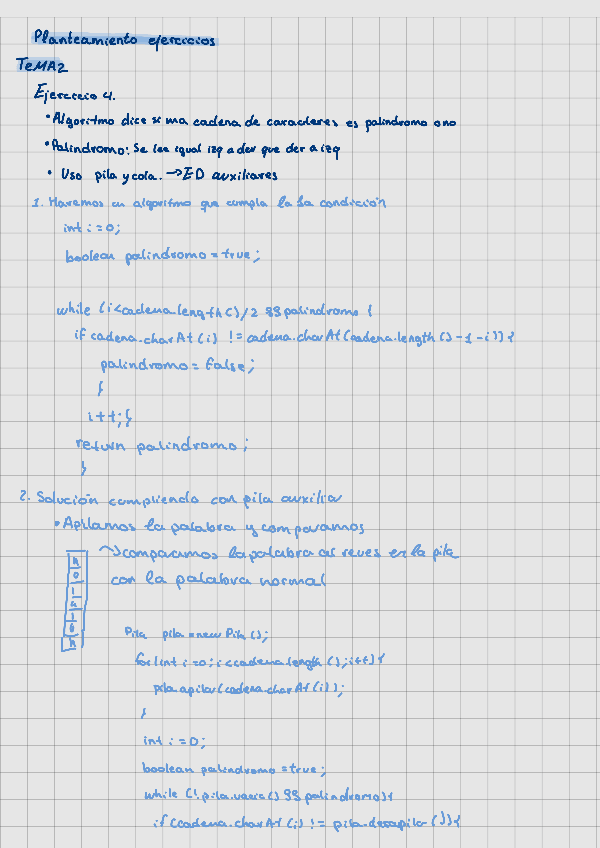 Planteamiento ejercicios
TEMA2
Ejercicio 4.
• Algoritmo dice si una cadena de caracteres es palindromo o no
• Palindromo: Se lee igual izq a der que der a izq
• Uso pila y cola. → ED auxiliares
1. Haremos un algoritmo que cumpla la 1a condición
int i = 0;
boolean palindromo = true;
while (i < cadena.length()/2 && palindromo {
if cadena.charAt(i) != cadena.charAt(cadena.length()-1-i)){
palindromo = false;
}
i++; }
return palindromo;
}
2. Solución cumpliendo con pila auxiliar
• Apilamos la palabra y comparamos
→ comparamos la palabra al reves en la pila
con la palabra normal
Pila pila = new Pila ();
for(int i = 0; i < cadena.length (); i++){
pila.apilar(cadena.charAt(i));
}
int i = 0;
boolean palindromo = true;
while (!pila.vacia() && palindromo){
if (cadena.charAt(i) != pila.desapilar()){